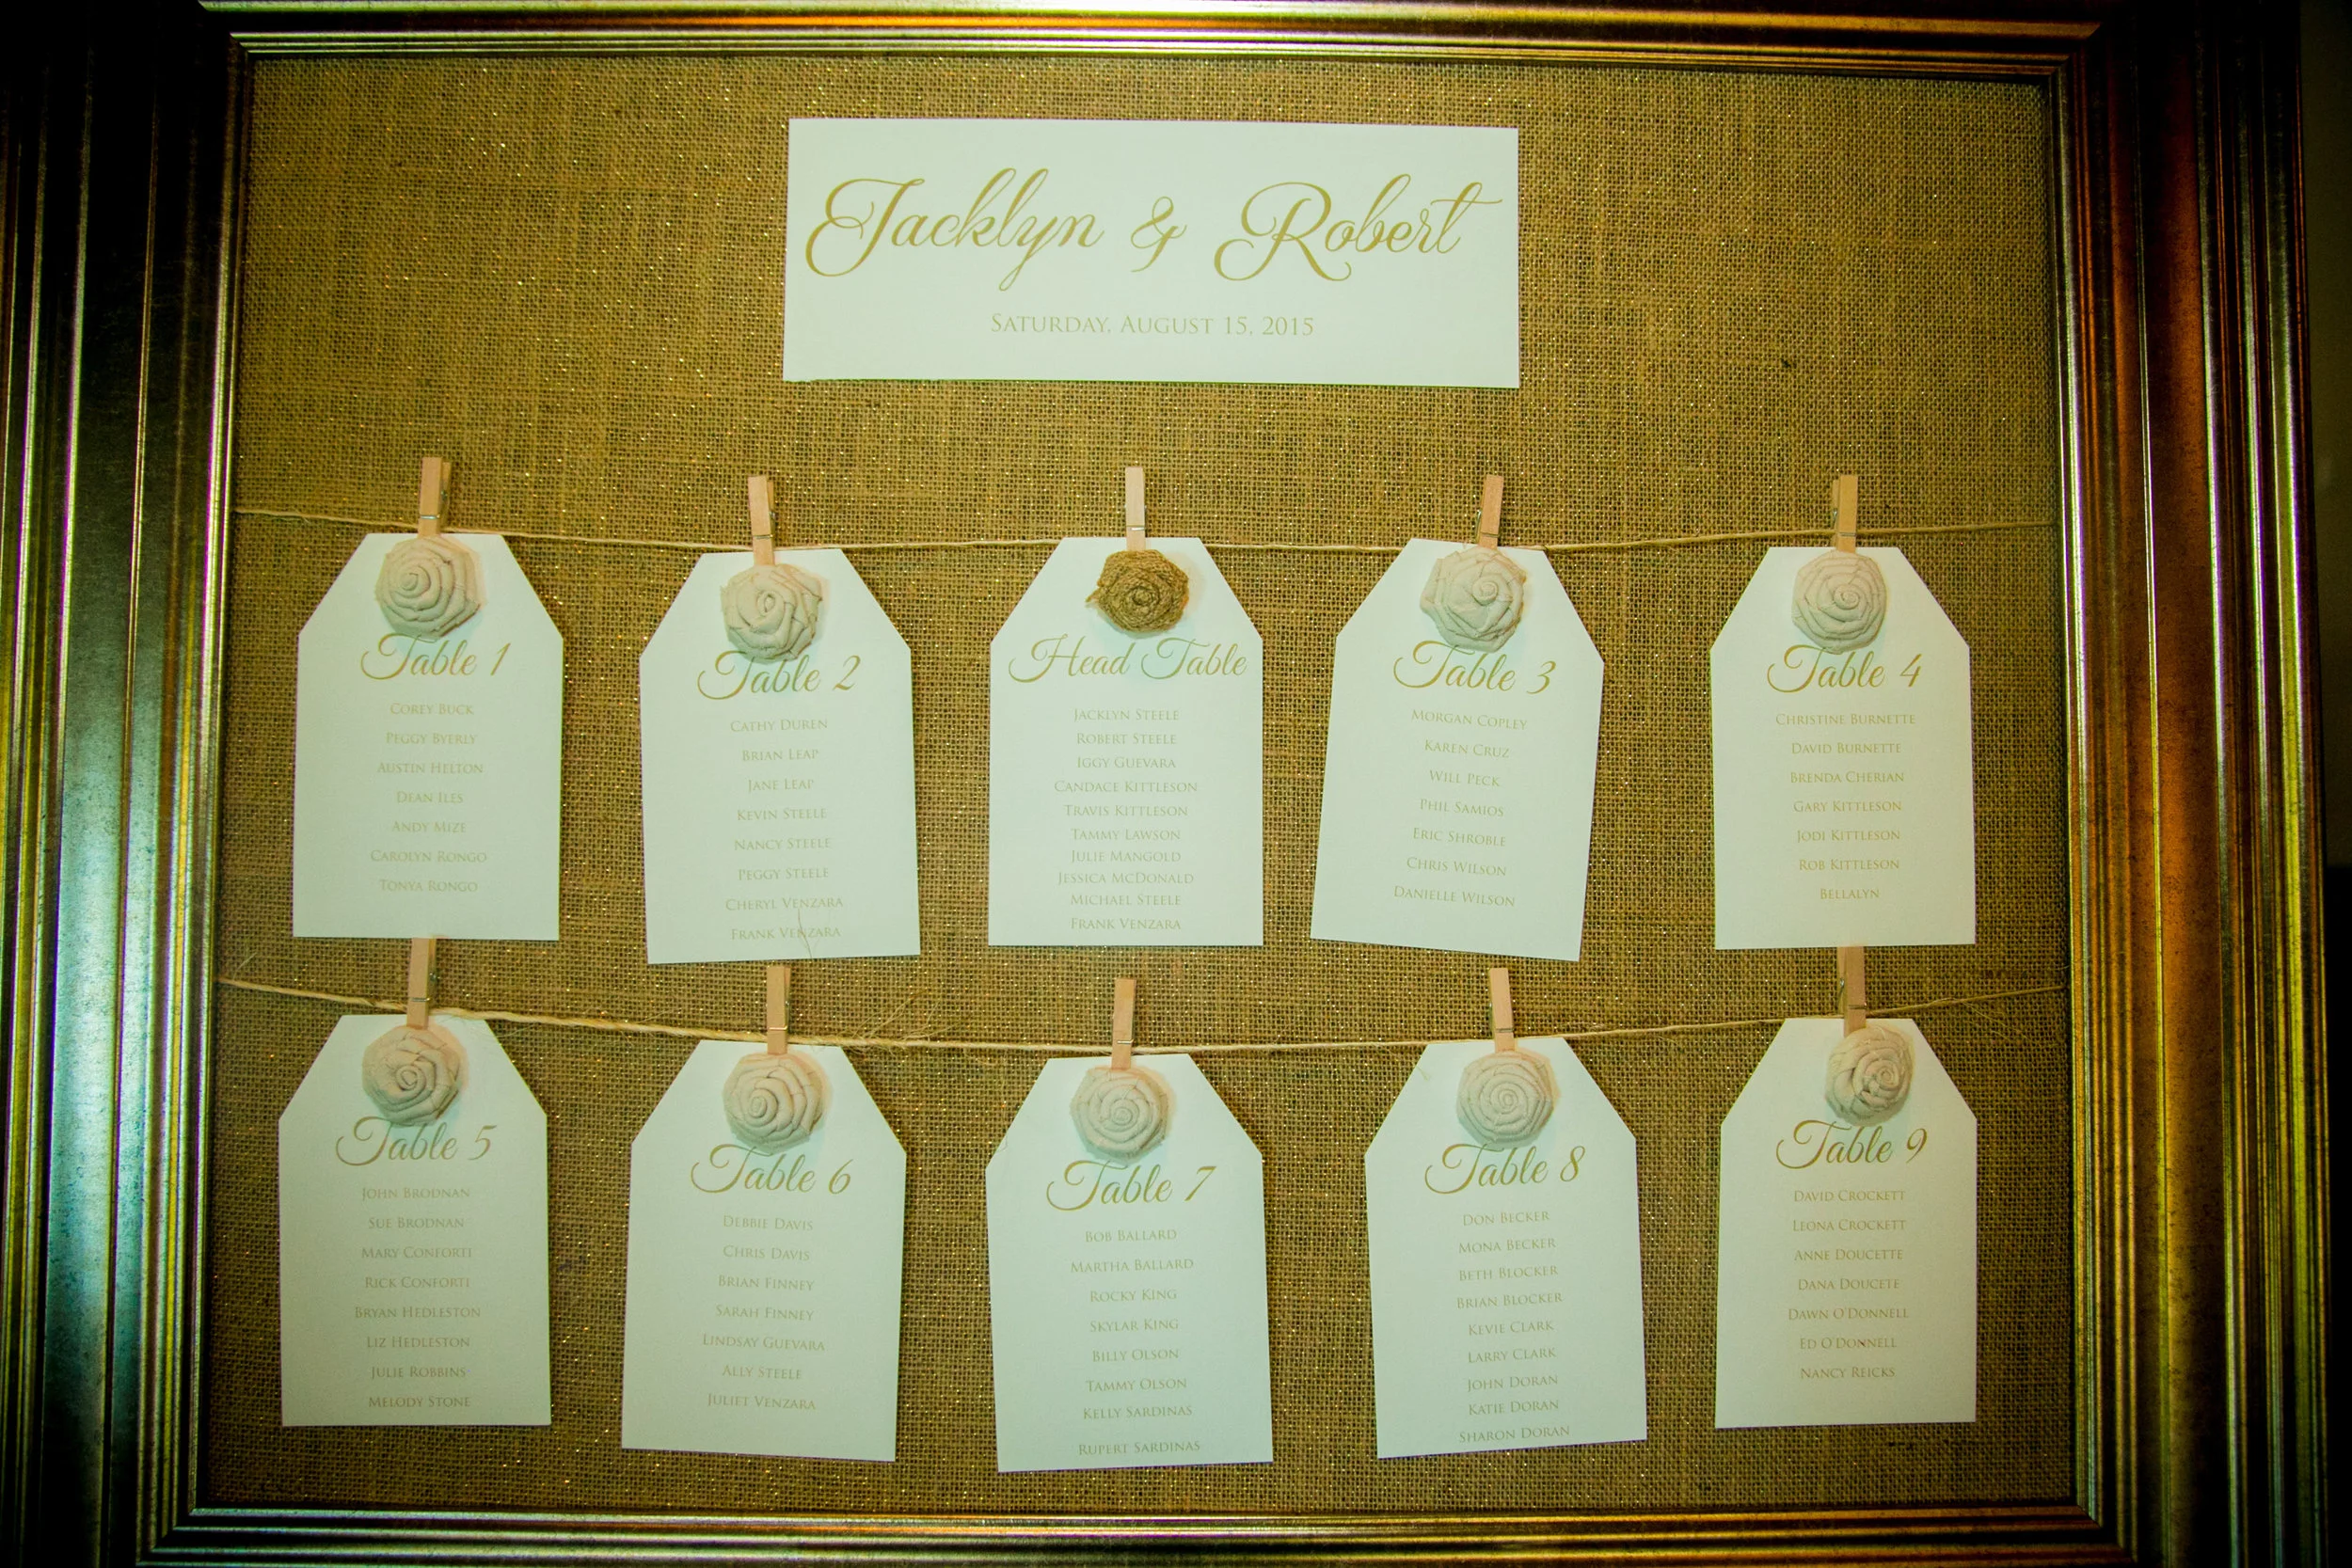 Jacklyn & Robert
SATURDAY, AUGUST 15, 2015
Table 1
COREY BUCK
PEGGY BYERLY
AUSTIN HELTON
DEAN ILES
ANDY MIZE
CAROLYN RONGO
TONYA RONGO
Table 2
CATHY DUREN
BRIAN LEAP
JANE LEAP
KEVIN STEELE
NANCY STEELE
PEGGY STEELE
CHERYL VENZARA
FRANK VENZARA
Head Table
JACKLYN STEELE
ROBERT STEELE
IGGY GUEVARA
CANDACE KITTLESON
TRAVIS KITTLESON
TAMMY LAWSON
JULIE MANGOLD
JESSICA MCDONALD
MICHAEL STEELE
FRANK VENZARA
Table 3
MORGAN COPLEY
KAREN CRUZ
WILL PECK
PHIL SAMIOS
ERIC SHROBLE
CHRIS WILSON
DANIELLE WILSON
Table 4
CHRISTINE BURNETTE
DAVID BURNETTE
BRENDA CHERIAN
GARY KITTLESON
JODI KITTLESON
ROB KITTLESON
BELLALYN
Table 5
JOHN BRODNAN
SUE BRODNAN
MARY CONFORTI
RICK CONFORTI
BRYAN HEDLESTON
LIZ HEDLESTON
JULIE ROBBINS
MELODY STONE
Table 6
DEBBIE DAVIS
CHRIS DAVIS
BRIAN FINNEY
SARAH FINNEY
LINDSAY GUEVARA
ALLY STEELE
JULIET VENZARA
Table 7
BOB BALLARD
MARTHA BALLARD
ROCKY KING
SKYLAR KING
BILLY OLSON
TAMMY OLSON
KELLY SARDINAS
RUPERT SARDINAS
Table 8
DON BECKER
MONA BECKER
BETH BLOCKER
BRIAN BLOCKER
KEVIE CLARK
LARRY CLARK
JOHN DORAN
KATIE DORAN
SHARON DORAN
Table 9
DAVID CROCKETT
LEONA CROCKETT
ANNE DOUCETTE
DANA DOUCETE
DAWN O'DONNELL
ED O'DONNELL
NANCY REICKS